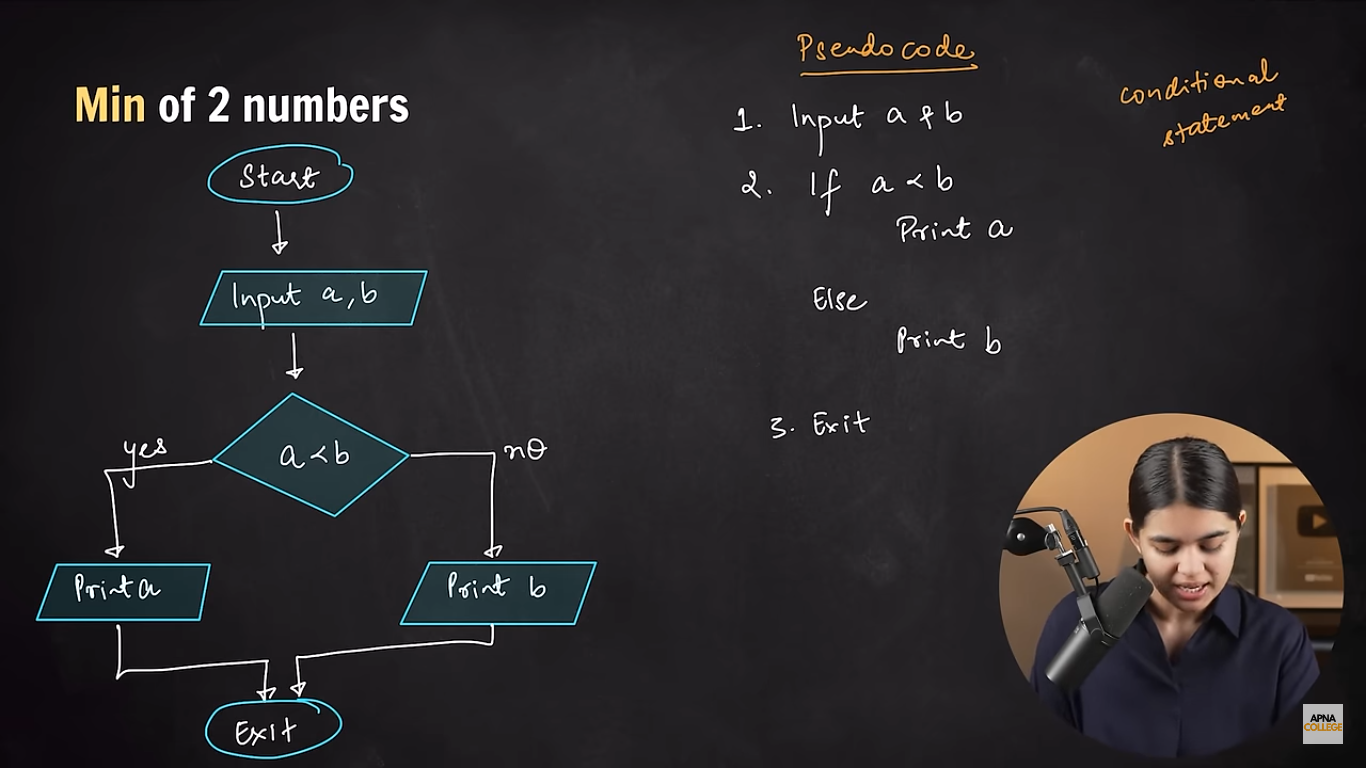 Min of 2 numbers
Start
Input a, b
a < b
yes
no
Print a
Print b
Exit
Pseudocode
1. Input a & b
2. If a < b
Print a
Else
Print b
3. Exit
conditional
statement
APNA
COLLEGE